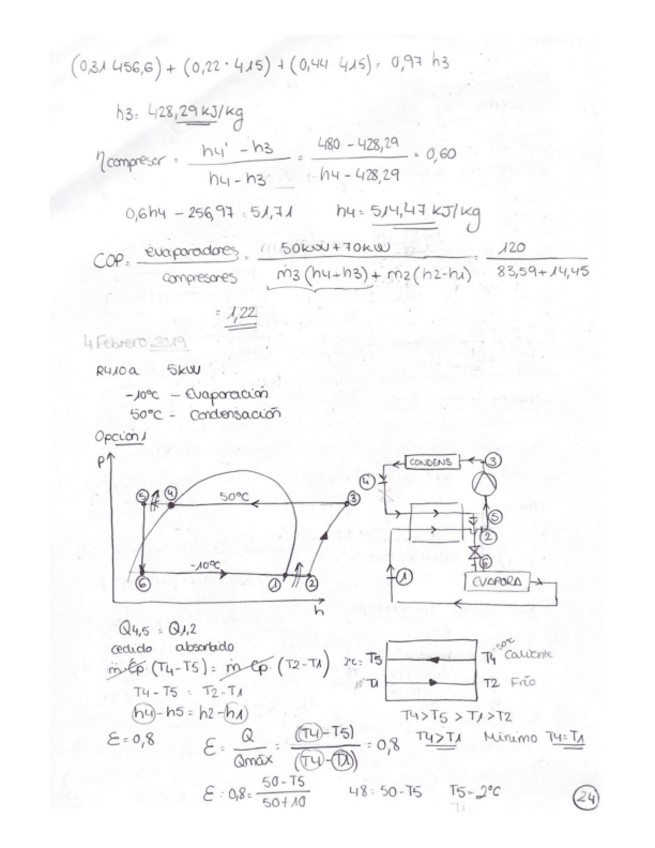 (0,31·456,6) + (0,22·415) + (0,44·415) = 0,97 h3
h3: 428,29 kJ/kg
ηcompresor = h4' - h3 / h4 - h3 = 480 - 428,29 / h4 - 428,29 = 0,60
0,6h4 - 256,97 = 51,71 h4 = 514,47 kJ/kg
COP = evaporadores / compresores = 50kW + 70kW / ṁ3 (h4+h3) + ṁ2 (h2-h1) = 120 / 83,59 + 14,45
= 1,22
4 Febrero 2019
R410a 5kW
-10ºC - Evaporación
50ºC - Condensación
Opción 1
P
5 4 50ºC 3
6 -10ºC 1 2
h
CONDENS 3
4
5
2
6
1 EVAPORA
Q4,5 = Q1,2
cedido absorbido
ṁ·Cp·(T4-T5) = ṁ·Cp·(T2-T1)
T4-T5 = T2-T1
h4-h5 = h2-h1
T5 T4 50ºC Caliente
T1 T2 Frío
T4>T5>T1>T2
ε = 0,8 ε = Q / Qmáx = (T4-T5) / (T4-T1) = 0,8 T4>T1 Mínimo T4=T1
ε = 0,8 = 50-T5 / 50+10 48 = 50-T5 T5 = 2ºC
24